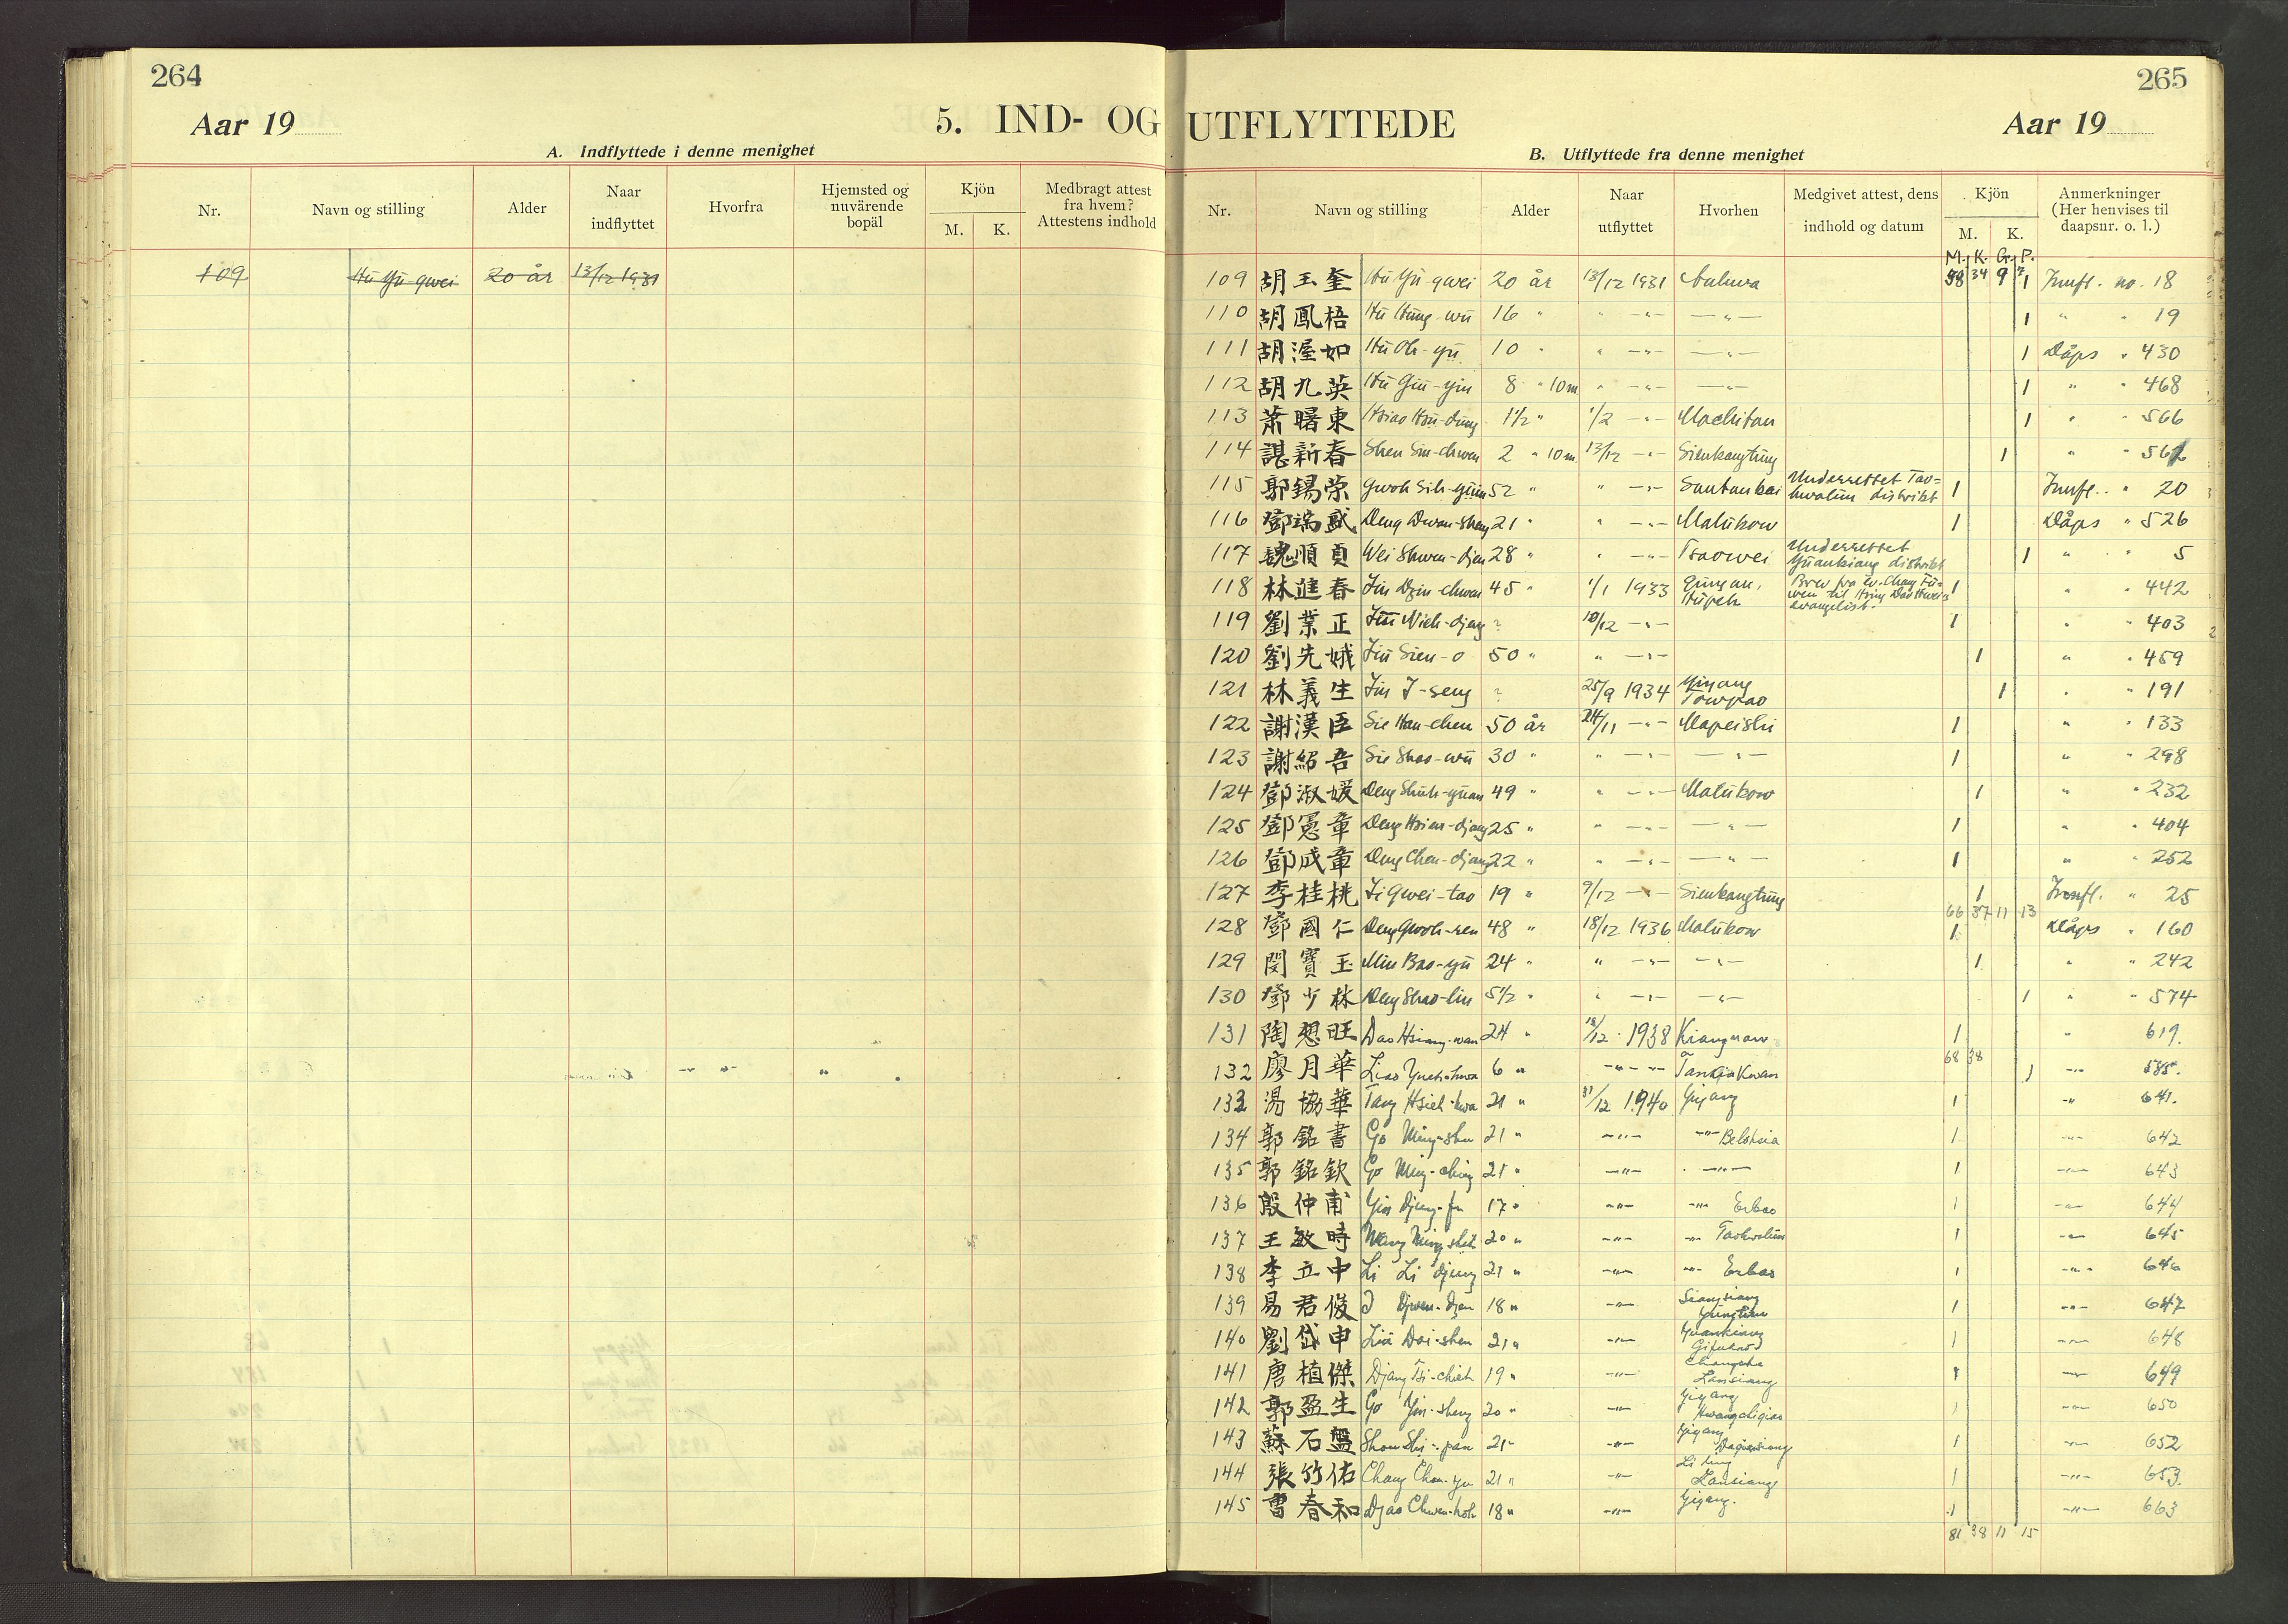 264
Aar 19
5. IND- OG
A. Indflyttede i denne menighet
Nr. Navn og stilling Alder Naar indflyttet Hvorfra Hjemsted og nuvärende bopäl Kjön M. K. Medbragt attest fra hvem? Attestens indhold
109 Hu Yü-gwei 20 år 13/12 1931
265
UTFLYTTEDE
Aar 19
B. Utflyttede fra denne menighet
Nr. Navn og stilling Alder Naar utflyttet Hvorhen Medgivet attest, dens indhold og datum Kjön M. K. Anmerkninger (Her henvises til daapsnr. o. l.)
M. K. G. P.
109 胡玉奎 Hu Yü-gwei 20 år 13/12 1931 58 34 9 7 1 Innfl. no. 18
110 胡鳳梧 Hu Hung-wu 16 " " -"- -"- 1 " " 19
111 胡渥如 Hu Oh-yü 10 " " -"- -"- 1 Dåps " 430
112 胡九英 Hu Giu-yin 8 " 10 m. " -"- -"- 1 " " 468
113 蕭曙東 Hsiao Hsü-dung 1½ " 1/2 -"- Machitan 1 " " 566
114 諶新春 Shen Sin-chwen 2 " 10 m. 13/12 -"- Sienkangtung 1 " " 562
115 郭錫荣 Gwoh Sih-yüin 52 " " -"- Santankai Underrettet Tao=hwalun distrikt 1 Innfl. " 20
116 鄧端感 Deng Dwan-shen 21 " " -"- Malukow 1 Dåps " 526
117 魏順貞 Wei Shwen-djen 28 " " -"- Tsaowei Underrettet Yüankiang distrikt 1 " " 5
118 林進春 Lin Dzin-chwen 45 " 1/1 1933 Hupeh Brev fra ev. Chang Fu-wen til Hsing Dao Hwei's evangelist. 1 " " 442
119 劉業正 Liu Nieh-djeng ? 10/12 -"- 1 " " 403
120 劉先娥 Liu Sien-o 50 " " -"- 1 " " 459
121 林義生 Lin I-seng ? 25/9 1934 Yiyang Towpao 1 " " 191
122 謝漢臣 Sie Han-chen 50 år 24/11 -"- Mapeishi 1 " " 133
123 謝紹吾 Sie Shao-wu 30 " " -"- -"- 1 " " 298
124 鄧淑媛 Deng Shuh-yüan 49 " " -"- Malukow 1 " " 232
125 鄧憲章 Deng Hsien-djang 25 " " -"- -"- 1 " " 404
126 鄧成章 Deng Chen-djang 22 " " -"- -"- 1 " " 252
127 李桂桃 Li Gwei-tao 19 " 9/12 -"- Sienkangtung 1 Innfl. " 25
66 37 11 13
128 鄧國仁 Deng Gwoh-ren 48 " 18/12 1936 Malukow 1 Dåps " 160
129 閔寶玉 Min Bao-yü 24 " " -"- -"- 1 " " 242
130 鄧少林 Deng Shao-lin 5½ " " -"- -"- 1 " " 574
131 陶想旺 Dao Hsiang-wan 24 " 18/12 1938 1 " 619.
68 38
132 廖月華 Liao Yueh-hwa 6 " -"- -"- 1 -"- 585.
133 湯協華 Tang Hsieh-hwa 21 " 31/12 1940 Yiyang 1 -"- 641.
134 郭銘書 Go Ming-shu 21 " -"- -"- Belohsia 1 -"- 642
135 郭銘欽 Go Ming-ching 21 " -"- -"- 1 -"- 643
136 殷仲甫 Yin Djung-fu 17 " -"- -"- Erbao 1 -"- 644
137 王敏時 Wang Ming shih 20 " -"- -"- Taohwalun 1 -"- 645
138 李立中 Li Li djung 21 " -"- -"- Erbao 1 -"- 646
139 易君俊 I Djwen-dzen 18 " -"- Siangsiang 1 -"- 647
140 劉岱申 Liu Dai-shen 21 " -"- Yuankiang 1 -"- 648
141 唐植傑 Djang Tsi-chieh 19 " -"- Changsha Lansiang 1 -"- 649
142 郭盈生 Go Yin-sheng 20 " -"- Yiyang Hwangchiqiao 1 -"- 650
143 蘇石盤 Shou Shi-pan 21 " -"- Yiyang 1 -"- 652
144 張竹佑 Chang Chou-yu 21 " -"- Li ling Lansiang 1 -"- 653.
145 曹春和 Djao Chwen-hoh 18 " -"- Yiyang. 1 -"- 663
81 38 11 15